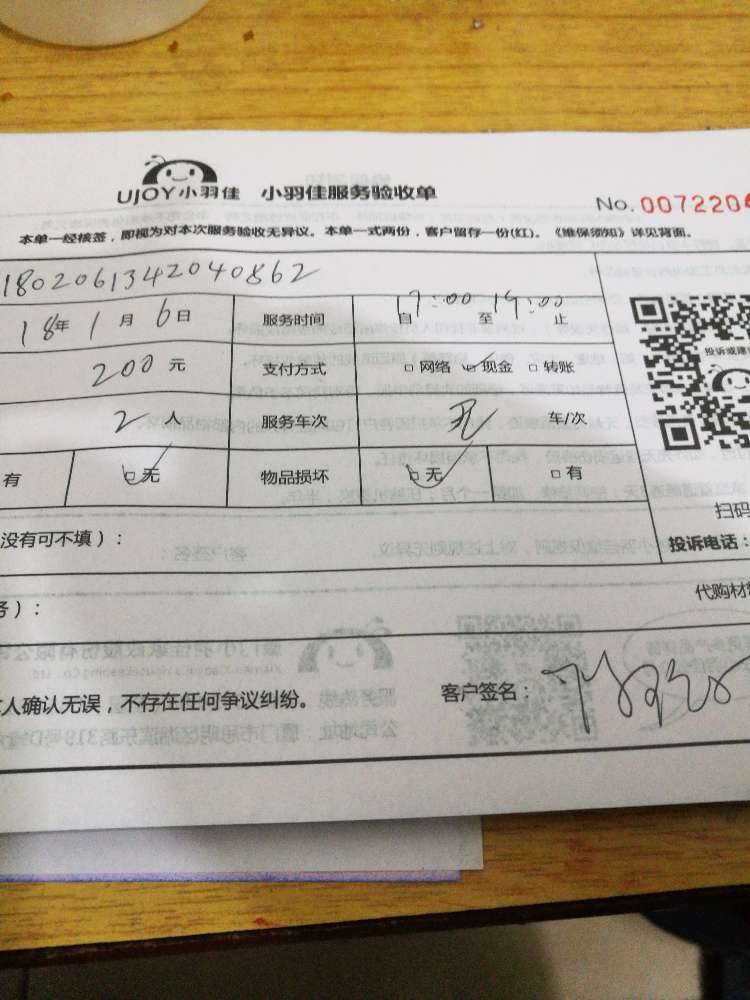 UJOY小羽佳 小羽佳服务验收单
No. 0072204
本单一经核签，即视为对本次服务验收无异议。本单一式两份，客户留存一份(红)。《维保须知》详见背面。
1802061342040862
18年1月6日 服务时间 自 至19:00止
200元 支付方式 □网络 □现金 □转账
投诉或建
2人 服务车次 无 车/次
有 □无 物品损坏 □无 □有
没有可不填）：
扫码
投诉电话：
务）：
代购材
人确认无误，不存在任何争议纠纷。 客户签名：